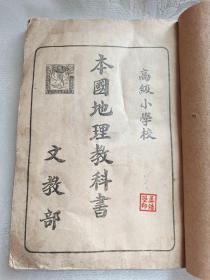 高級小學校
本國地理教科書
文教部